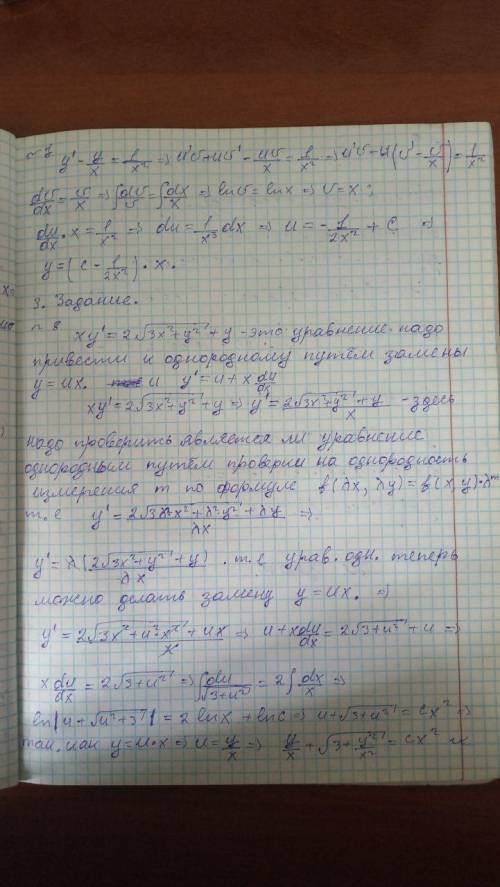 y' - y/x = 1/x² ⇒ u'v + uv' - uv/x = 1/x² ⇒ u'v + u(v' - v/x) = 1/x²
dv/dx = v/x ⇒ ∫dv/v = ∫dx/x ⇒ ln v = ln x ⇒ v = x;
du/dx · x = 1/x² ⇒ du = 1/x³ dx ⇒ u = -1/2x² + C ⇒
y = (c - 1/2x²) · x.
3. Задание.
n 8
xy' = 2√3x²+y² + y - это уравнение надо
привести к однородному путём замены
y = ux. и y' = u + x du/dx
xy' = 2√3x²+y² + y ⇒ y' = 2√3x²+y² + y / x - здесь
надо проверить является ли уравнение
однородным путём проверки на однородность
измерения m по формуле f(λx, λy) = f(x, y)·λᵐ
т.е y' = 2√3λ²x²+λ²y² + λy / λx ⇒
y' = λ(2√3x²+y² + y) / λx . т.е урав. одн. теперь
можно делать замену y = ux. ⇒
y' = 2√3x²+u²·x² + ux / x ⇒ u + x du/dx = 2√3+u² + u ⇒
x du/dx = 2√3+u² ⇒ ∫du/√3+u² = 2∫dx/x ⇒
ln|u + √u²+3| = 2 ln x + ln c ⇒ u + √3+u² = cx² ⇒
так как y = u·x ⇒ u = y/x ⇒ y/x + √3 + y²/x² = cx²